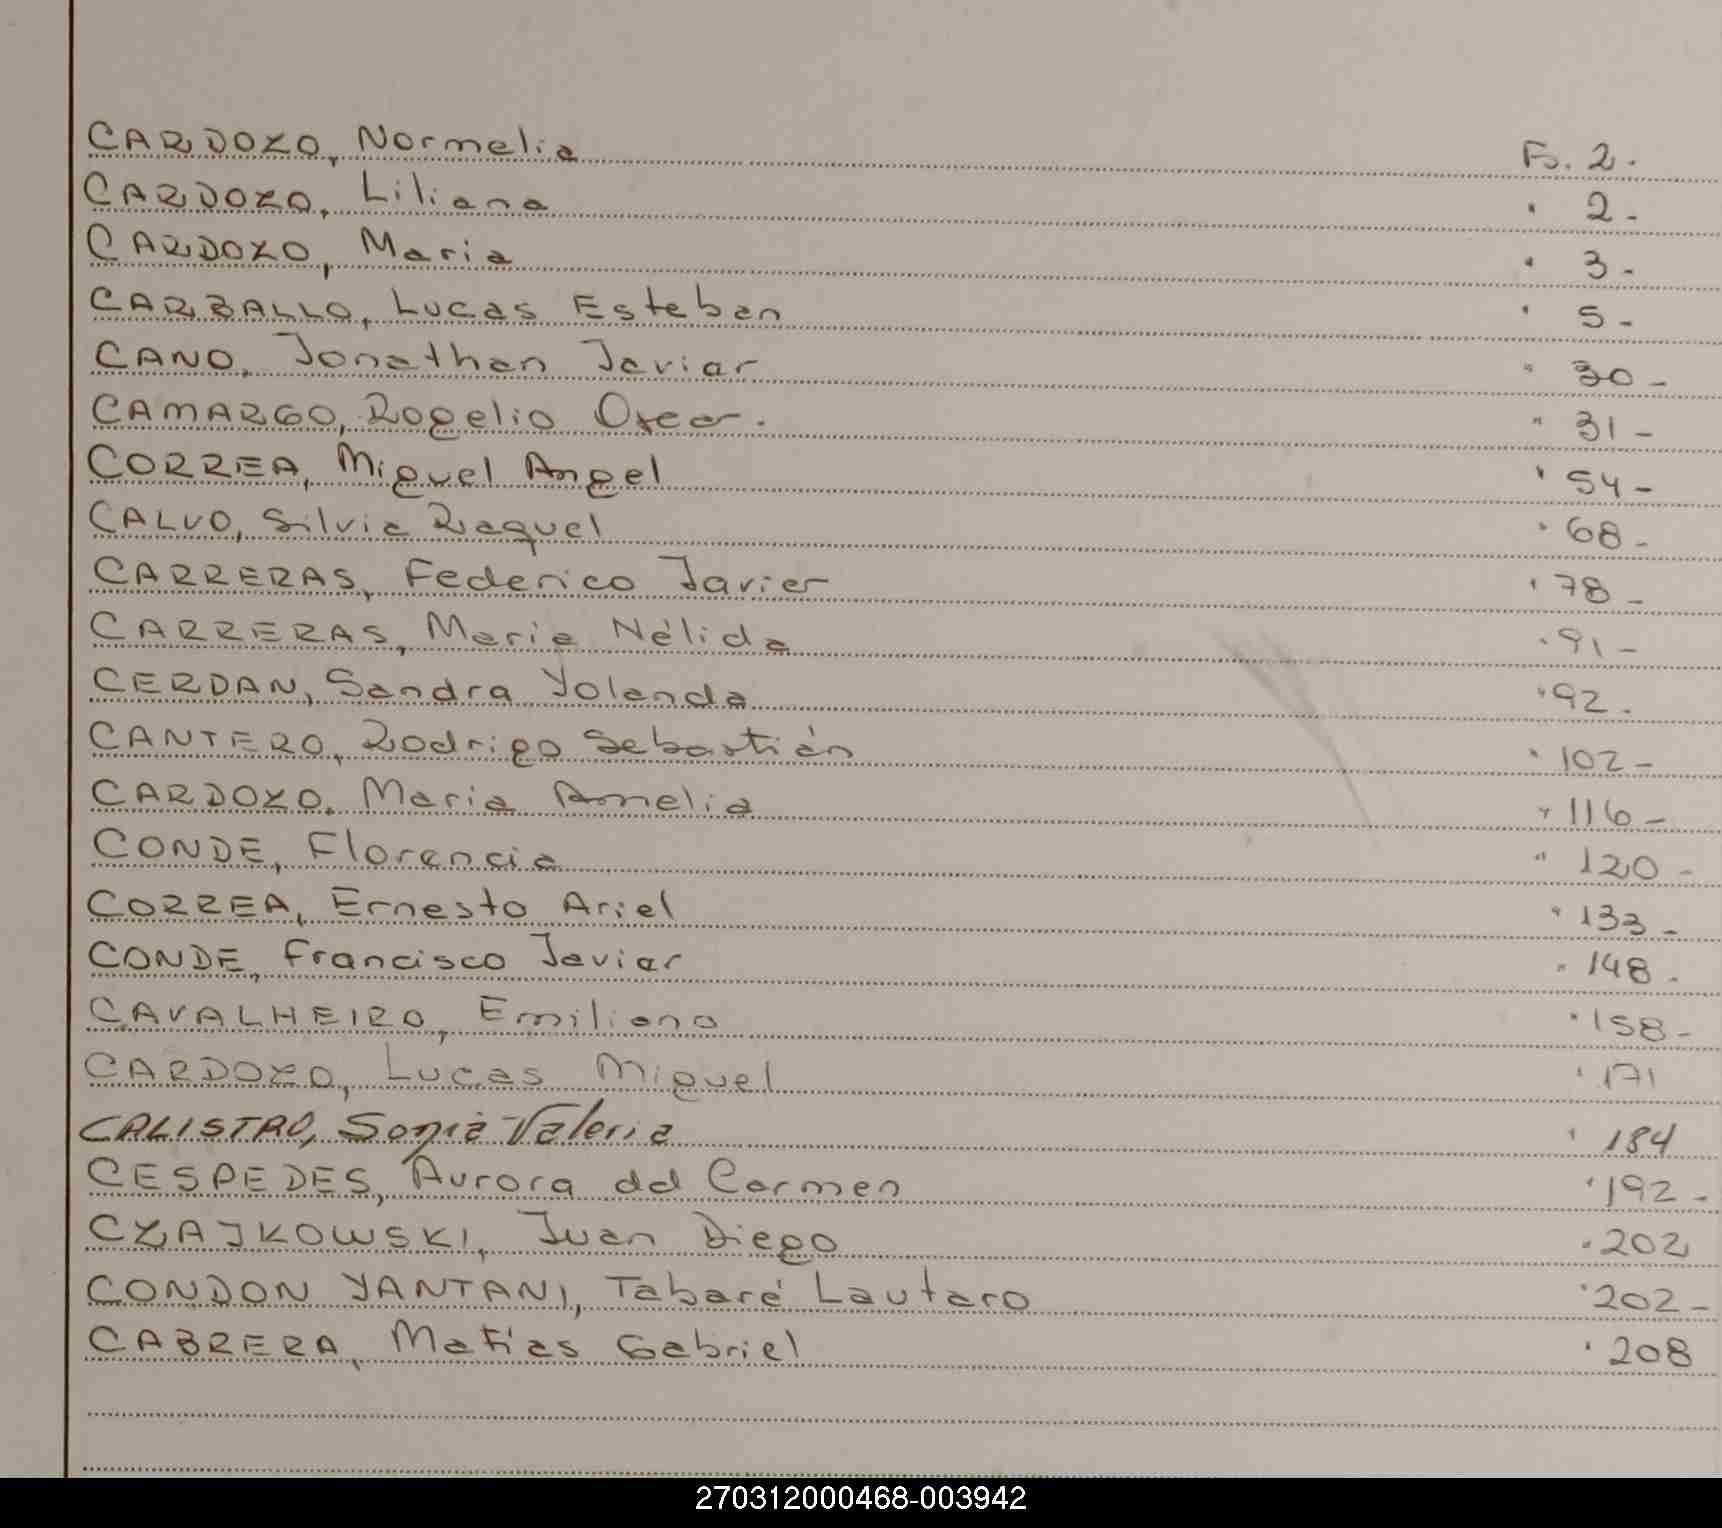 CARDOZO, Normelia Fs. 2.
CARDOZO, Liliana " 2-
CARDOZO, Maria " 3-
CARBALLO, Lucas Esteban " 5-
CANO, Jonathan Javier " 30-
CAMARGO, Rogelio Oscar. " 31-
CORREA, Miguel Angel " 54-
CALVO, Silvia Raquel " 68-
CARRERAS, Federico Javier " 78-
CARRERAS, Maria Nélida " 91-
CERDAN, Sandra Yolanda " 92.
CANTERO, Rodrigo Sebastián " 102-
CARDOZO, Maria Amelia " 116-
CONDE, Florencia " 120-
CORREA, Ernesto Ariel " 133-
CONDE, Francisco Javier " 148.
CAVALHEIRO, Emiliano " 158-
CARDOZO, Lucas Miguel " 171
CALISTRO, Sonia Valeria " 184
CESPEDES, Aurora del Carmen " 192-
CZAJKOWSKI, Juan Diego " 202
CONDON YANTANI, Tabaré Lautaro " 202-
CABRERA, Matías Gabriel " 208
270312000468-003942